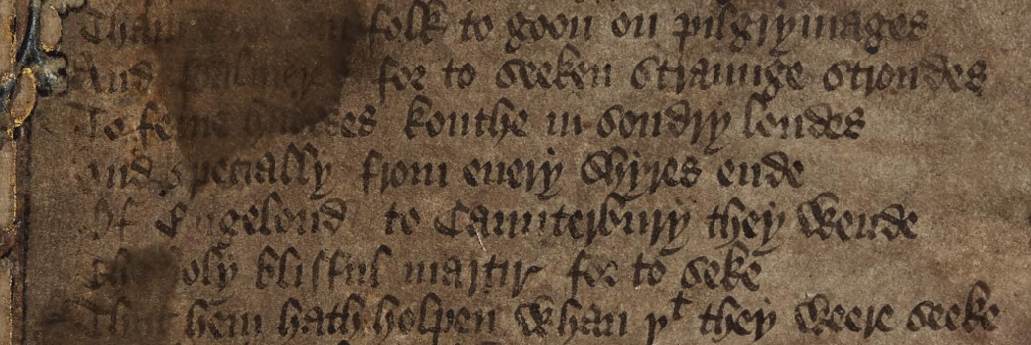 folk to goon on pilgrymages
And for to seeken straunge strondes
To kouthe in sondry londes
And specially from euery shyres ende
Of Engelond to Caunterbury they wende
holy blisful martir for to seke
That hem hath holpen whan þᵗ they weere seeke